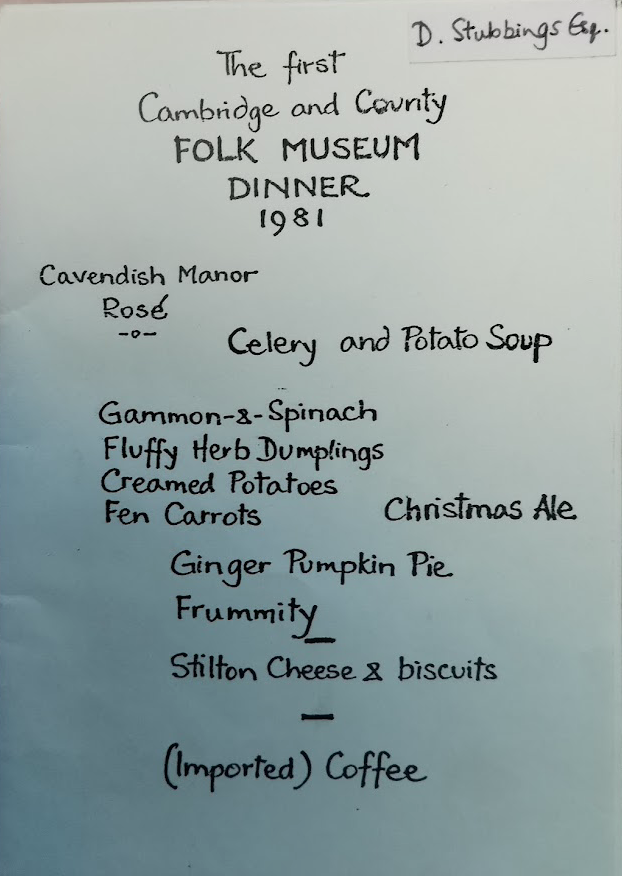 D. Stubbings Esq.
The first
Cambridge and County
FOLK MUSEUM
DINNER
1981
Cavendish Manor
Rosé
-o-
Celery and Potato Soup
Gammon-&-Spinach
Fluffy Herb Dumplings
Creamed Potatoes
Fen Carrots
Christmas Ale
Ginger Pumpkin Pie
Frummity
Stilton Cheese & biscuits
(Imported) Coffee